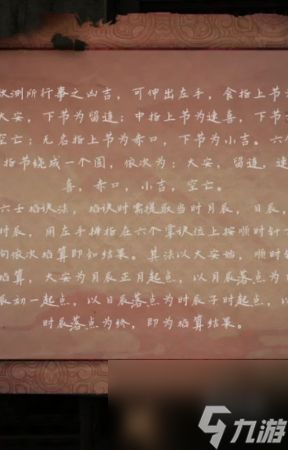 测所行事之凶吉，可伸出左手，食指上节
大安，下节为留连；中指上节为速喜，下节
空亡；无名指上节为赤口，下节为小吉。六
指节绕成一个圆，依次为：大安，留连，速
喜，赤口，小吉，空亡。
六壬掐诀法，掐诀时需提取当时月辰，日辰，
时辰，用左手拇指在六个掌诀位上按顺时针
向依次掐算即知结果。其法以大安始，顺时
掐算，大安为月辰正月起点，以月辰落点为
辰初一起点，以日辰落点为时辰子时起点，以
时辰落点为终，即为掐算结果。
九游